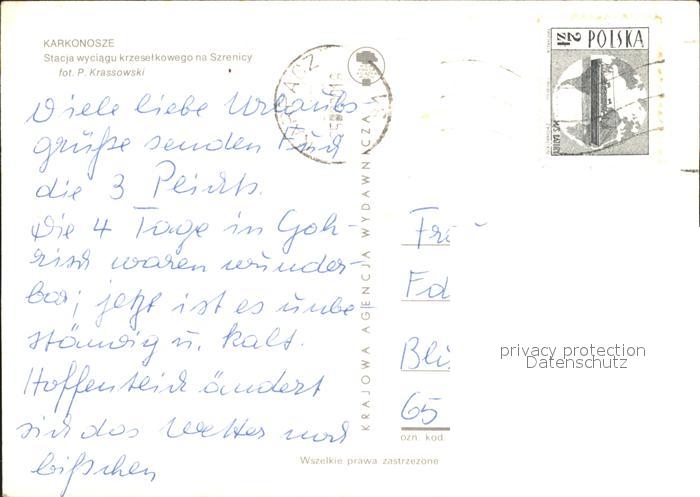 KARKONOSZE
Stacja wyciągu krzesełkowego na Szrenicy
fot. P. Krassowski
Viele liebe Urlaubs-
grüße senden Euch
die 3 Pleichts.
Die 4 Tage in Goh-
risch waren wunder-
bar; jetzt ist es unbe
ständig u. kalt.
Hoffentlich ändert
sich das Wetter noch
bißchen
KRAJOWA AGENCJA WYDAWNICZA
2 ZŁ POLSKA
Fr
Fd
Bli
65
ozn. kod.
Wszelkie prawa zastrzeżone
privacy protection
Datenschutz